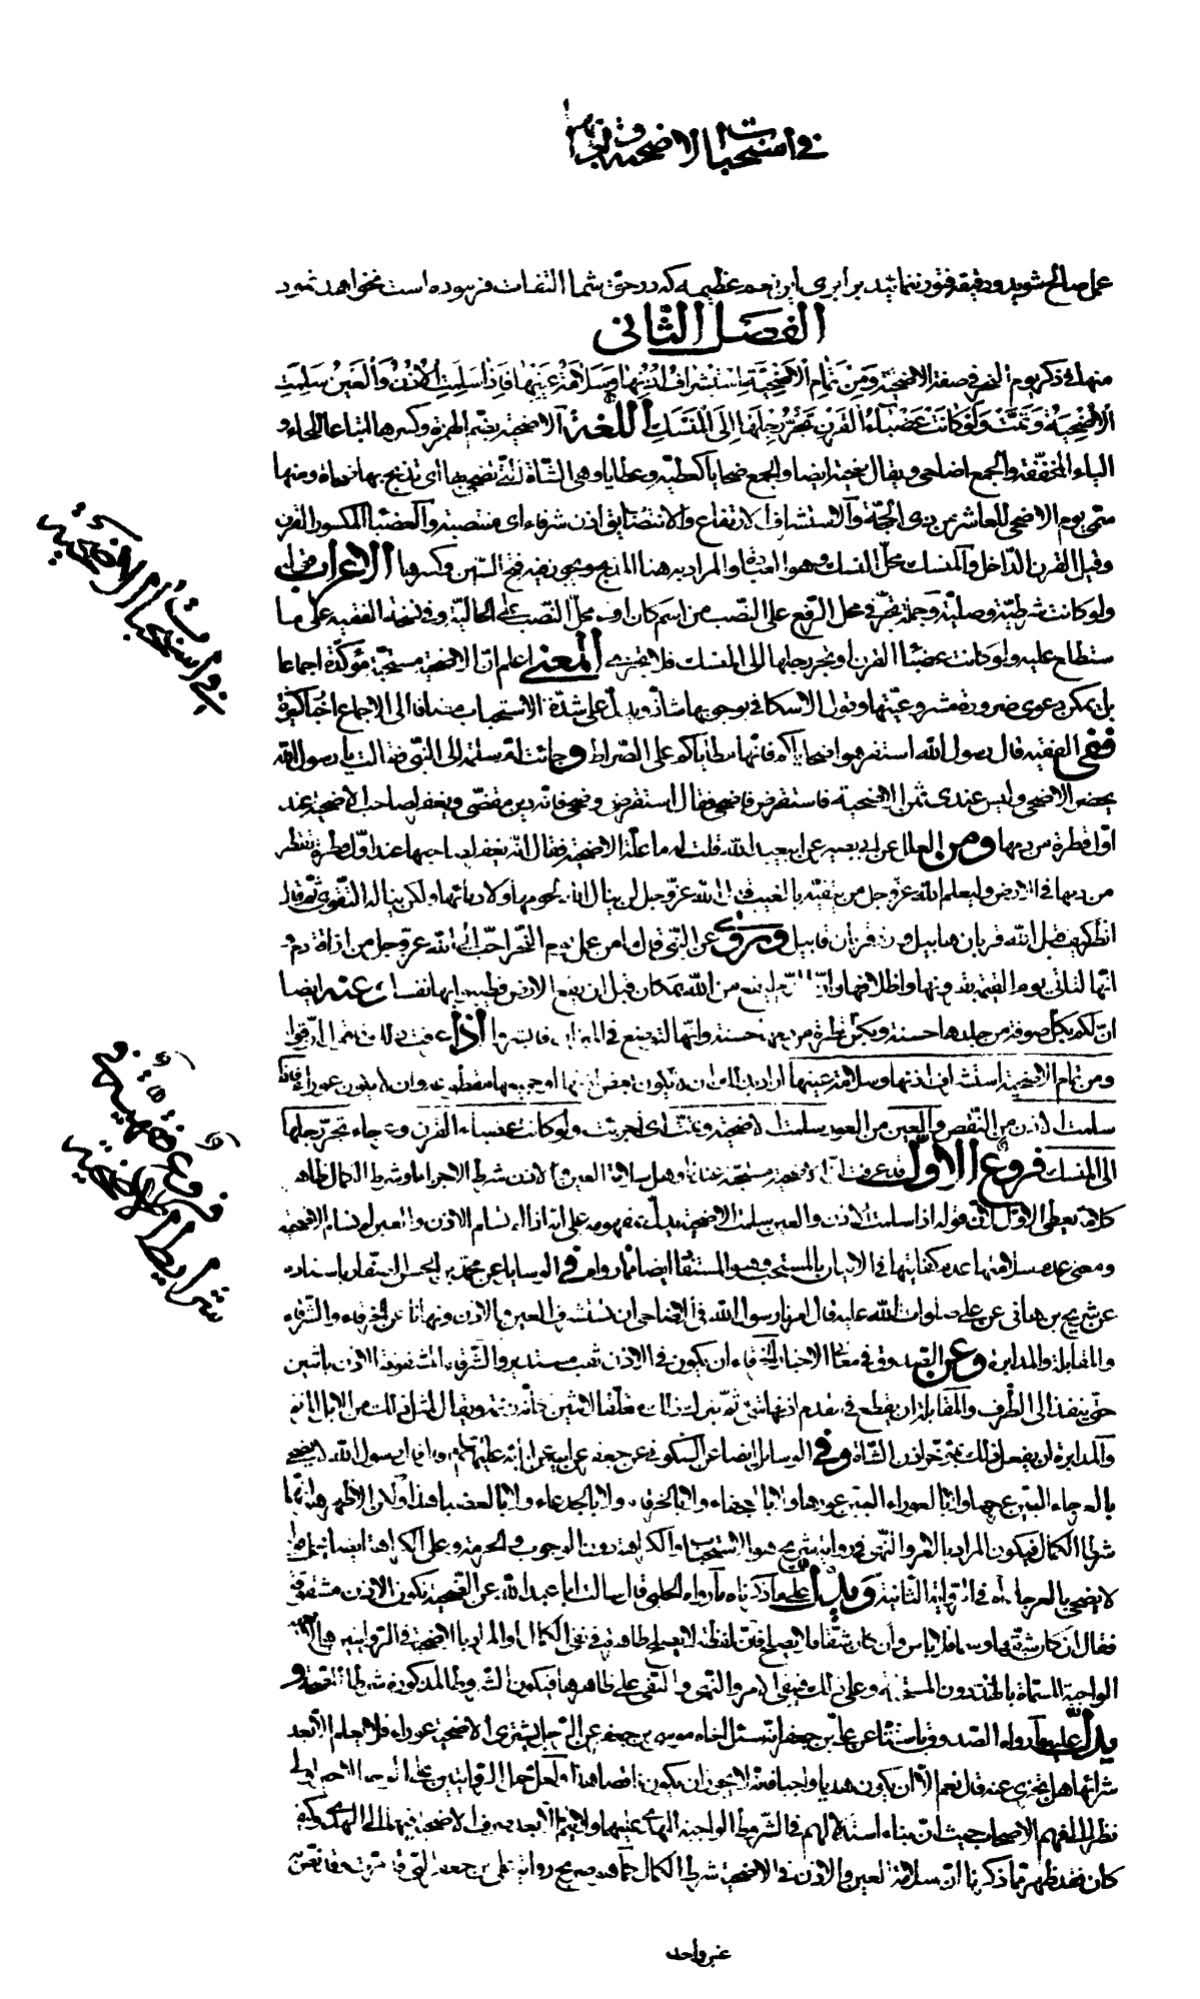 في استحباب الاضحية وثوابها
عمل صالح شويد ودقيقه فتور ننمائيد برابرى اين نعمه عظيمه كه در حق شما التفات فرموده است نخواهد نمود
الفصل الثاني
منها في ذكر يوم النحر في صفة الاضحية وَمِنْ تَمامِ الْأُضْحِيَّةِ اسْتِشْرافُ اُذُنِها وَسَلامَةُ عَيْنِها فَاِذا سَلِمَتِ الْاُذُنُ وَالْعَيْنُ سَلِمَتِ
الْاُضْحِيَّةُ وَتَمَّتْ وَلَوْ كانَتْ عَضْباءَ الْقَرْنِ تَجُرُّ رِجْلَها اِلَى الْمَنْسَكِ اللغة الاضحية بضم الهمزة وكسرها اتباعا للحاء و
الياء المخففة والجمع اضاحي ويقال ضحية ايضا والجمع ضحايا كعطية وعطايا وهي الشاة التي تضحى بها اى تذبح بها ضحاة ومنها
سمى يوم الاضحى للعاشر من ذى الحجة والاستشراف الارتفاع والانتصاب يق اذن شرفاء اى منتصبة والعضباء المكسور القرن
وقيل القرن الداخل والمنسك محل النسك وهو العبادة والمراد به هنا المذبح ويجوز فيه فتح السين وكسرها الاعراب
ولو كانت شرطية وصلية وجملة تجر في محل الرفع على النصب من اسم كان او في محل النصب على الحالية وفي نسخة الفقيه على ما
ستطلع عليه ولو كانت عضباء القرن او تجر رجلها الى المنسك فلا تجزى المعنى اعلم ان الاضحية مستحبة مؤكدة اجماعا
بل يمكن دعوى ضرورة مشروعيتها وقول الاسكافي بوجوبها شاذ ويدل على شدة الاستحباب مضافا الى الاجماع اخبار كثيرة
ففى الفقيه قال رسول الله استفرهوا ضحاياكم فانها مطاياكم على الصراط وجائت ام سلمة الى النبي فقالت يا رسول الله
يحضر الاضحى وليس عندى ثمن الاضحية فاستقرض فاضحى فقال استقرضي وضحى فانه دين مقضى ويغفر لصاحب الاضحية عند
اول قطرة من دمها ومن العلل عن ابى بصير عن ابيعبد الله قلت له ما علة الاضحية فقال انه يغفر لصاحبها عند اول قطرة تقطر
من دمها في الارض وليعلم الله عز وجل من يتقيه بالغيب قال الله عز وجل لن ينال الله لحومها ولا دماؤها ولكن يناله التقوى ثم قال
انظر كيف قبل الله قربان هابيل ورد قربان قابيل وروى عن النبي قال ما من عمل يوم النحر احب الى الله عز وجل من اراقة دم و
انها لتأتي يوم القيمة بقرونها واظلافها وان الدم ليقع من الله بمكان قبل ان يقع الارض فطيبوا بها نفسا وعنه ايضا
ان لكم بكل صوفة من جلدها حسنة وبكل قطرة من دمها حسنة وانها لتوضع في الميزان فابشروا اذا عرفت ذلك
ومن تمام الاضحية استشراف اذنها وسلامة عينها
سلمت الاذن من النقص والعين من العور سلمت الاضحية وتمت اى اجزئت ولو كانت عضباء القرن وعرجاء تجر رجلها
الى المنسك فروع الاول قد عرفت ان الاضحية مستحبة عندنا وهل سلامة العين والاذن شرط الاجزاء او شرط الكمال ظاهر
كلامه يعطى الاول لان قوله اذا سلمت الاذن والعين سلمت الاضحية يدل بمفهومه على انه اذا لم تسلم الاذن والعين لم تسلم الاضحية
ومعنى عدم سلامتها عدم كفايتها في الاتيان بالمستحب وهو المستفاد ايضا مما رواه في الوسايل عن محمد بن الحسن الصفار باسناده
عن شريح بن هاني عن على صلوات الله عليه قال امرنا رسول الله في الاضاحى ان نستشرف العين والاذن ونهانا عن الخرقاء والشرقاء
والمقابلة والمدابرة وعن الصدوق في معاني الاخبار الخرقاء ان يكون في الاذن ثقب مستدير والشرقاء المشقوقة الاذن باثنين
حتى ينفذ الى الطرف والمقابلة ان يقطع في مقدم اذنها شئ ثم يترك ذلك معلقا لا تبين كانه زنمة ويقال لمثل ذلك من الابل المزنم
والمدابرة ان يفعل ذلك بمؤخر اذن الشاة وفي الوسايل ايضا عن السكوني عن جعفر عن ابيه عن ابائه عليهم السلم قال قال رسول الله لا يضحى
بالعرجاء البين عرجها ولا بالعوراء البين عورها ولا بالعجفاء ولا بالخرقاء ولا بالجدعاء ولا بالعضباء هذا ولكن الاظهر هو انها
شرط الكمال فيكون المراد بالامر والنهى في رواية شريح هو الاستحباب والكراهة دون الوجوب والحرمة وعلى الكراهة ايضا
لا يضحى بالعرجاء اه في الرواية الثانية ويدل على ما ذكرناه ما رواه الحلبى قال سالت ابا عبد الله عن الضحية تكون الاذن مشقوقة
فقال ان كان شقها وسما فلا باس وان كان شقا فلا يصلح فان لفظة لا يصلح ظاهرة في نفى الكمال او المراد بالاضحية في الروايتين
الواجبة المسماة بالهدى دون المستحبة وعلى ذلك فيبقى الامر والنهى والنفى على ظاهرها فيكون الشروط المذكورة شروطا للصحة و
يدل عليه ما رواه الصدوق باسناده عن على بن جعفر انه سئل اخاه موسى بن جعفر عن الرجل يشترى الاضحية عوراء فلا يعلم الا بعد
شرائها هل تجزى عنه قال نعم الا ان يكون هديا واجبا فانه لا يجوز ان يكون ناقصا هذا ولعل حمل الروايتين على
نظرا الى فهم الاصحاب حيث ان بناء استدلالهم في الشروط الواجبة
كان فقد ظهر مما ذكرنا ان سلامة العين والاذن في الاضحية شرط الكمال كما هو صريح رواية على بن جعفر التي
غير واحد
في استحباب الاضحية
فروع فقهية في
شرايط الاضحية